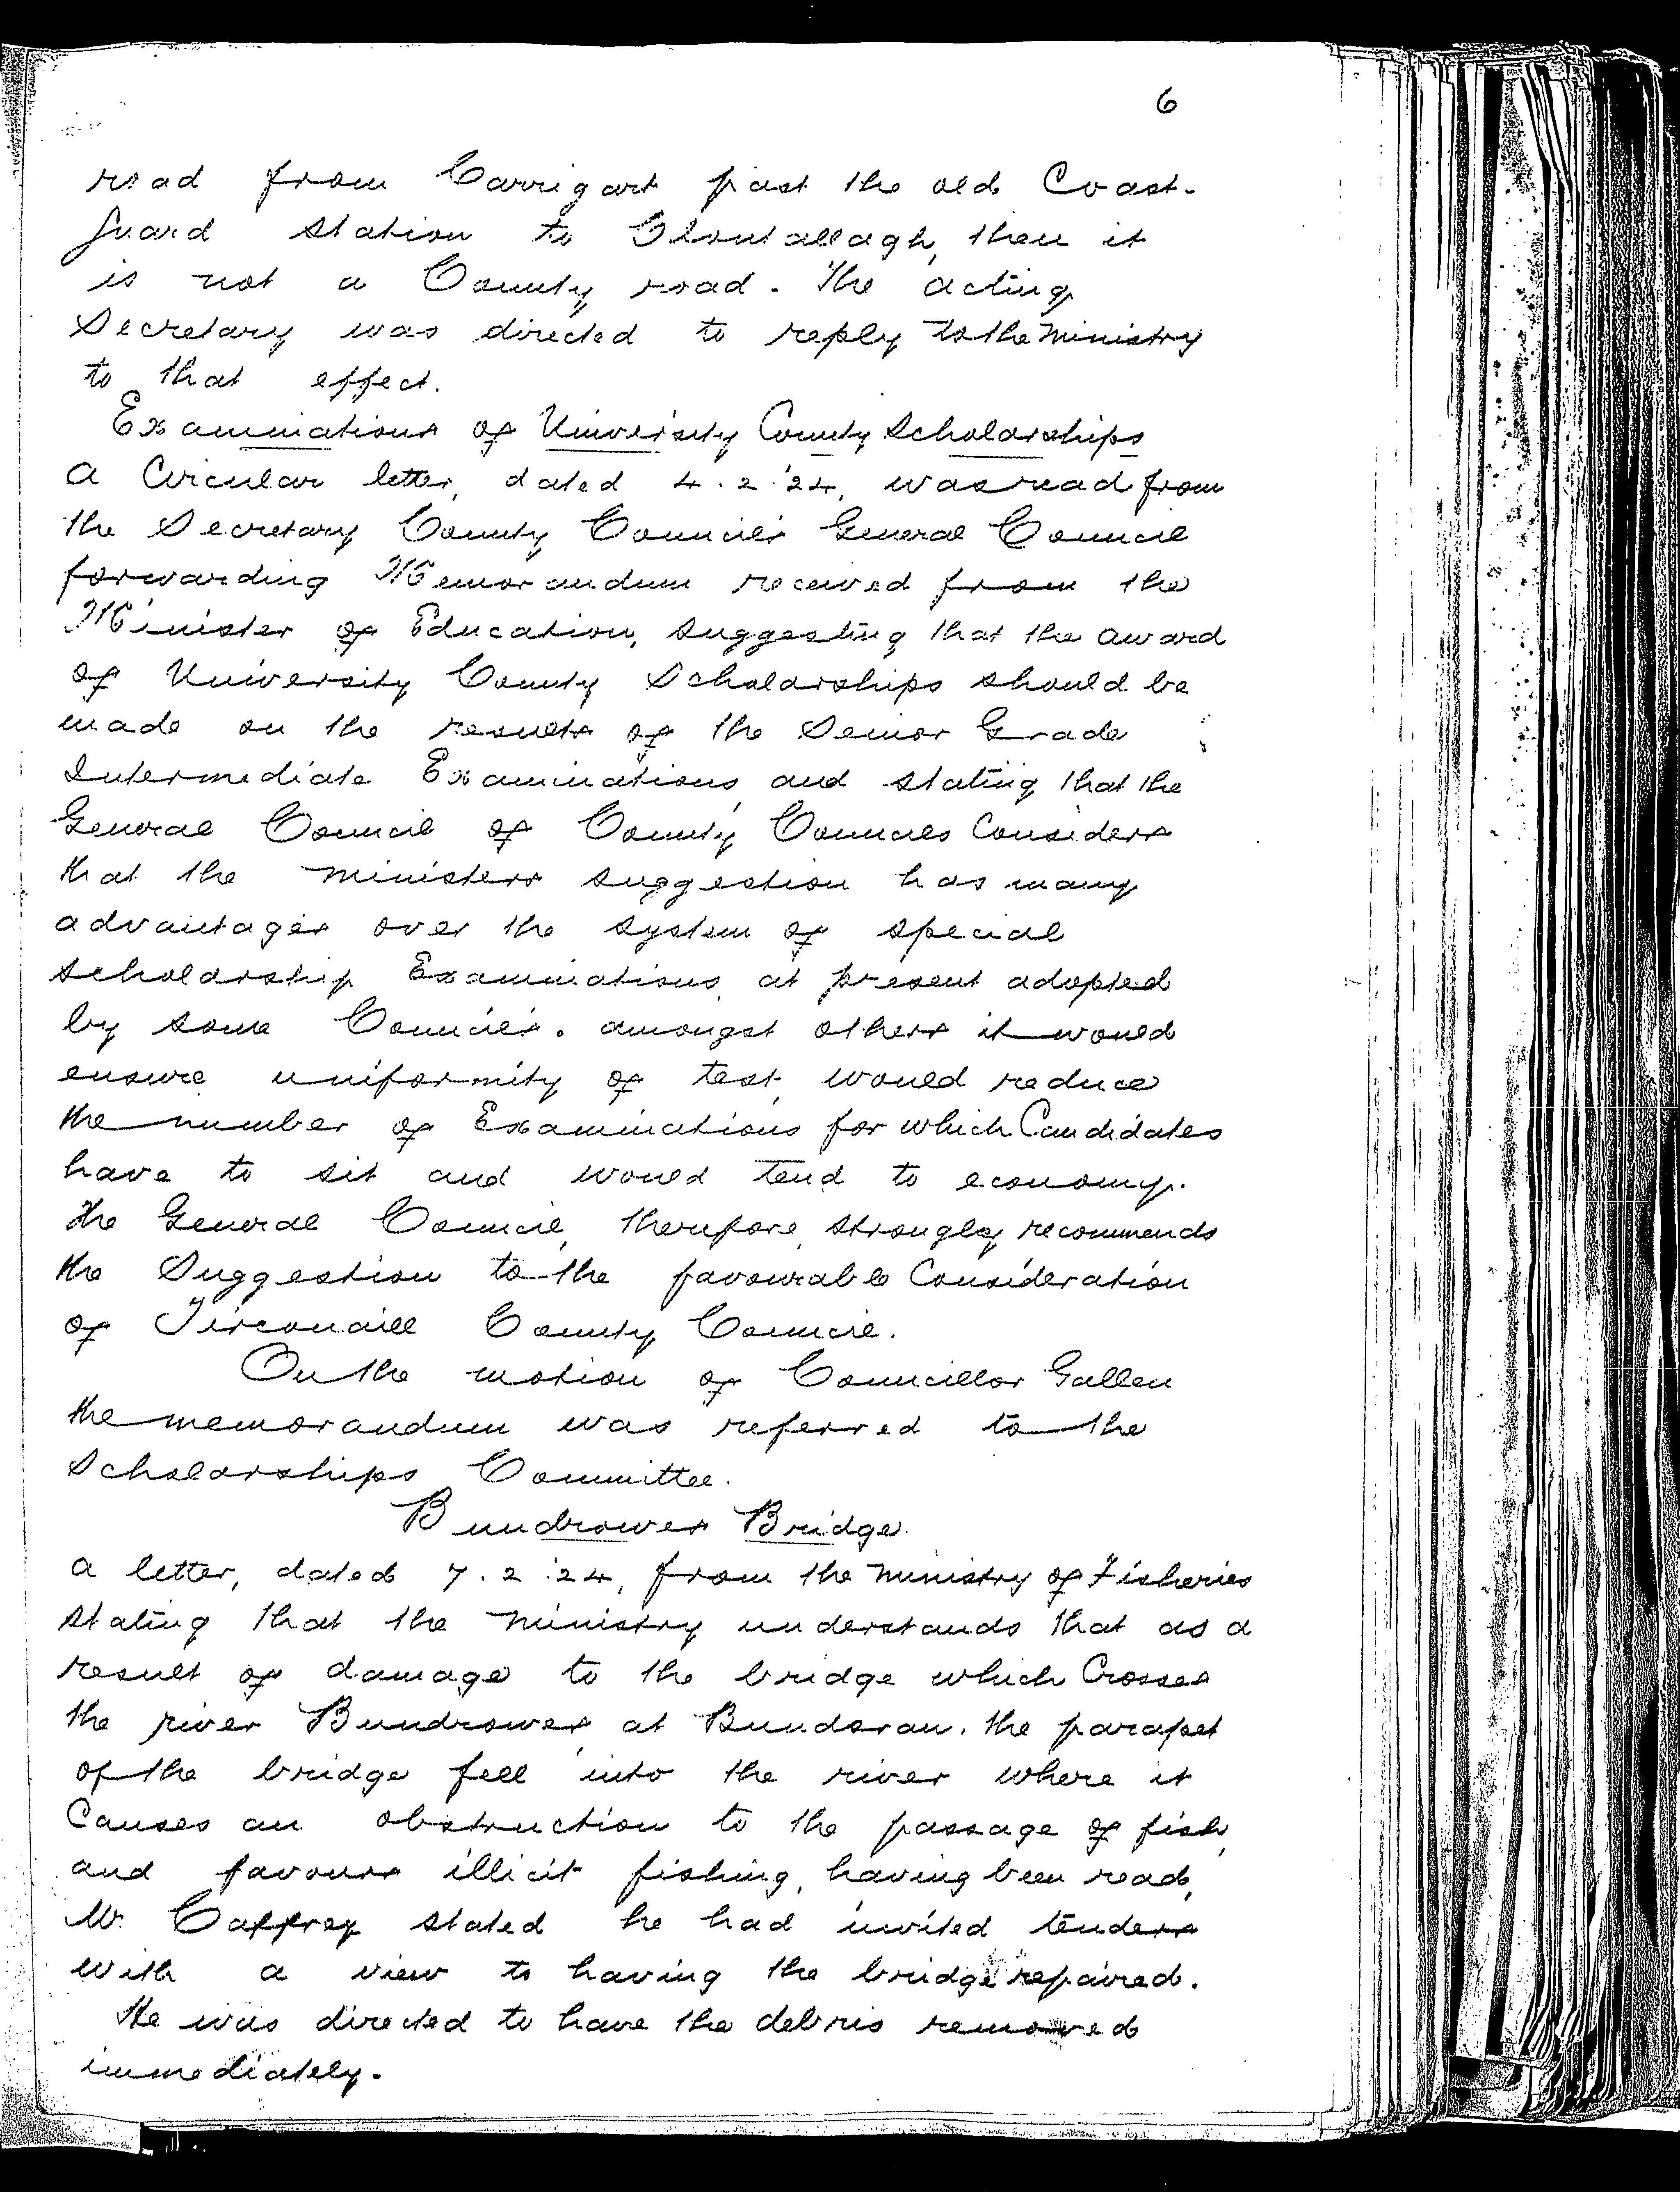 6
road from Carrigart past the old Coast-
guard station to Glontallagh, then it
is not a County road. The acting
Secretary was directed to reply to the Ministry
to that effect.
Examinations of University County Scholarships
A Circular letter, dated 4.2.'24, was read from
the Secretary County Councils General Council
forwarding Memorandum received from the
Minister of Education, suggesting that the award
of University County Scholarships should be
made on the results of the Senior Grade
Intermediate Examinations, and stating that the
General Council of County Councils Considers
that the Ministers suggestion has many
advantages over the system of special
scholarship Examinations, at present adopted
by some Councils. amongst others it would
ensure uniformity of test, would reduce
the number of Examinations for which Candidates
have to sit and would tend to economy.
The General Council, therefore, strongly recommends
the Suggestion to the favourable Consideration
of Tirconaill County Council.
On the motion of Councillor Gallen
the memorandum was referred to the
Scholarships Committee.
Bundrowes Bridge.
A letter, dated 7.2.'24, from the Ministry of Fisheries
stating that the Ministry understands that as a
result of damage to the bridge which Crosses
the river Bundrowes, at Bundoran, the parapet
of the bridge fell into the river where it
Causes an obstruction to the passage of fish,
and favours illicit fishing, having been read,
Mr. Caffrey stated he had invited tenders
with a view to having the bridge repaired.
He was directed to have the debris removed
immediately.